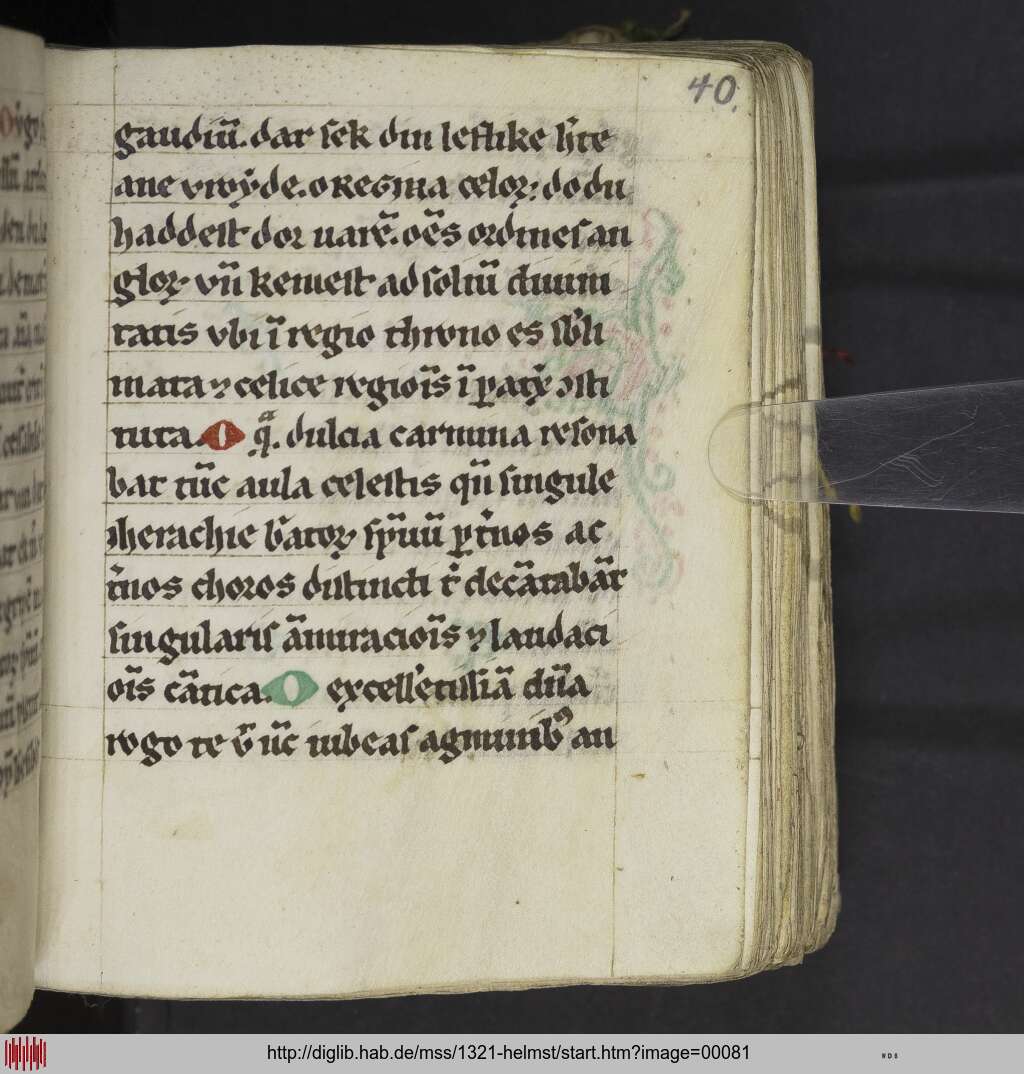 40.
gaudiū. dar sek din leflike h̄te
ane vrovͦde. o regina celoꝝ. do du
haddest dor uarē. oēs ordines an
gloꝝ. vn̄ kemest ad soliū diuini
tatis vbi ī regio throno es sb̓li
mata ⁊ celice regiōis ī ꝑatͥx ꝯsti
tuta. O qͣ. dulcia carmina resona
bat tūc aula celestis qn̄ singule
iherachie b̓atoꝝ sp̄uū ꝑ t̓nos ac
t̓nos choros distincti t̓ decātabāt
singularis āmiraciōis ⁊ laudaci
ōis cātica. O excell̓etissīa dn̄a
rogo te v̄ nc̄ iubeas agminibꝰ an
http://diglib.hab.de/mss/1321-helmst/start.htm?image=00081